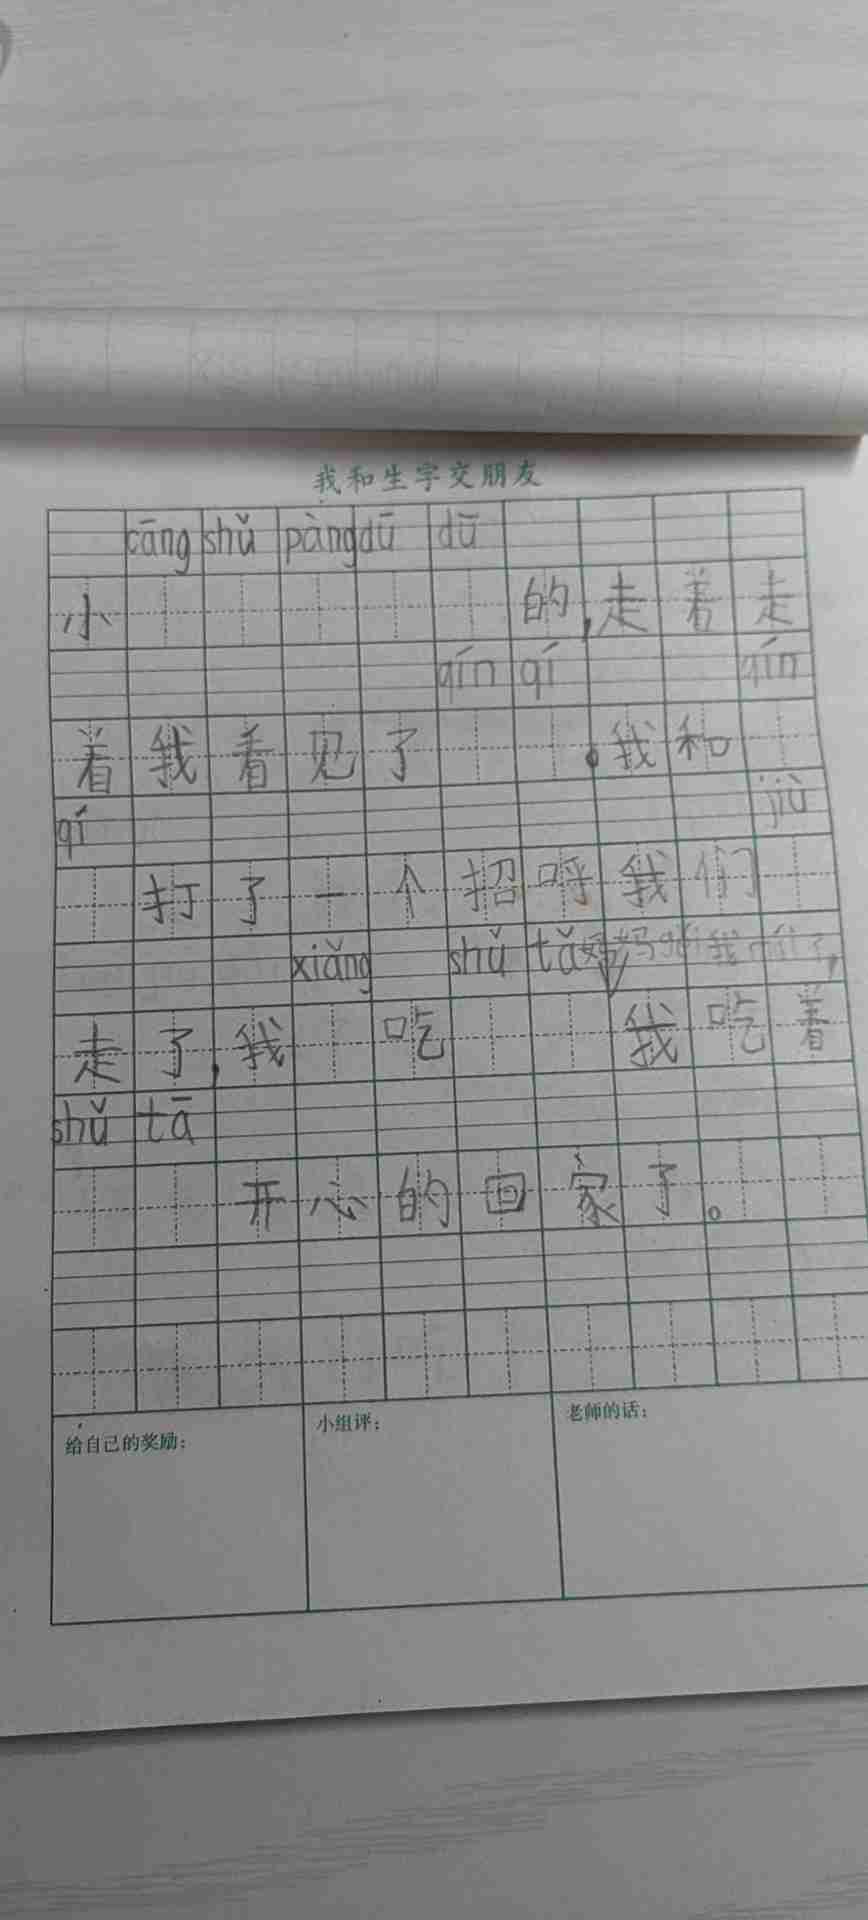 我和生字交朋友
cāng shǔ pàng dū dū
小 的,走着走
qín qí qín
着我看见了 。我和
qí jiù
打了一个招呼我们
xiǎng shǔ tǎ 妈妈 我
走了,我 吃 我吃着
shǔ tā
开心的回家了。
给自己的奖励:
小组评:
老师的话: